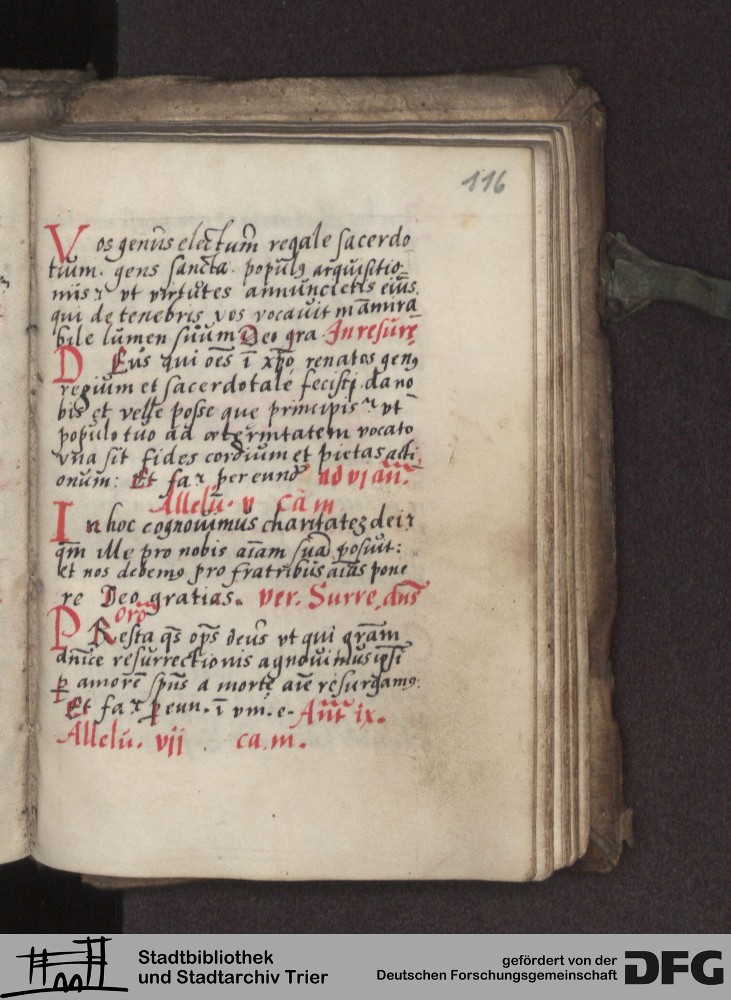 116
Vos genus electum regale sacerdo
tium. gens sancta. populꝰ arquisitio
nis ut virtutes annuncietis eius.
qui de tenebris vos vocavit in am̄ira
bile lumen suum Deo gra. In resurɾe
Deus qui oēs ī xp̄o renatos genꝰ
regium et sacerdotale fecisti. da no
bis et velle posse que principis ut
populo tuo ad eternitatem vocato
vna sit fides cordium et pietas acti
onum: Et fa ꝛ per eund ad vj añ.
Allelu. v cā m
In hoc cognovimus charitatez dei
qm̄ ille pro nobis aīam suā posuit:
et nos debemꝰ pro fratribus aīas pone
re Deo gratias. ver. Surre. dn̄s
Orō
PResta qs̄ opš deus ut qui gram
dn̄ice resurrectionis agnovimus ip̄i
ꝑ amorē sp̄us a morte aīe resurgamꝰ:
Et fa ꝛ ꝑ eun. ī vni. e. Añt ix.
Allelu. vij ca. m.
Stadtbibliothek
und Stadtarchiv Trier
gefördert von der
Deutschen Forschungsgemeinschaft
DFG